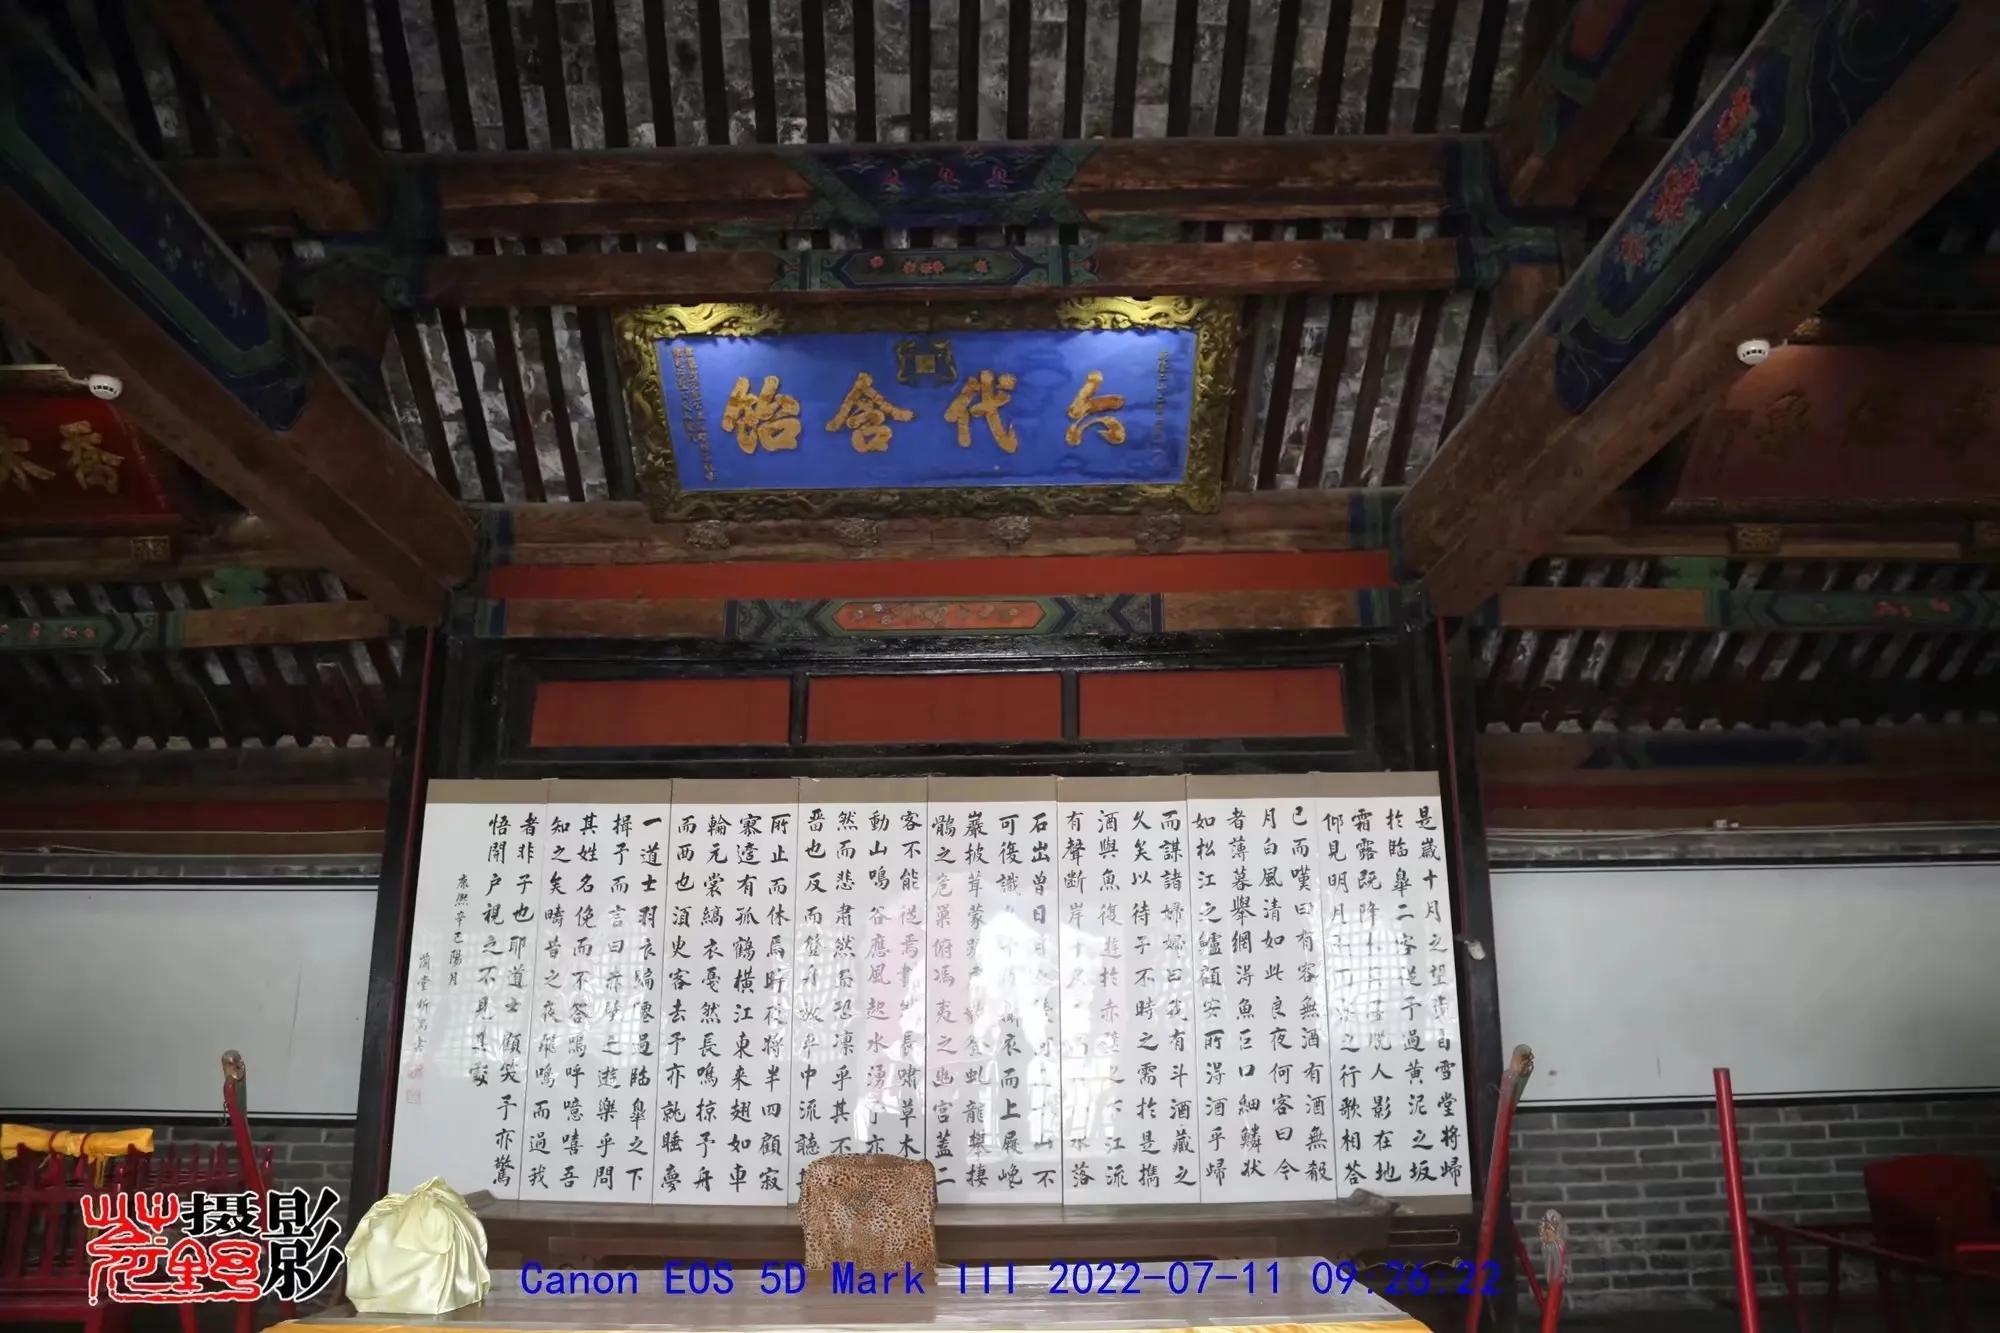 六代含飴
喬木
是歲十月之望步自雪堂將歸
於臨皋二客從予過黃泥之坂
霜露既降木葉盡脫人影在地
仰見明月顧而樂之行歌相答
已而嘆曰有客無酒有酒無殽
月白風清如此良夜何客曰今
者薄暮舉網得魚巨口細鱗狀
如松江之鱸顧安所得酒乎歸
而謀諸婦婦曰我有斗酒藏之
久矣以待子不時之需於是攜
酒與魚復遊於赤壁之下江流
有聲斷岸千尺山高月小水落
石出曾日月之幾何而江山不
可復識矣予乃攝衣而上履巉
巖披茸蒙踞虎豹登虬龍攀棲
鶻之危巢俯馮夷之幽宮蓋二
客不能從焉劃然長嘯草木
動山鳴谷應風起水湧予亦
然而悲肅然而恐凜乎其不
留也反而登舟放乎中流聽其
所止而休焉時夜將半四顧寂
寥適有孤鶴橫江東來翅如車
輪元裳縞衣戛然長鳴掠予舟
而西也須臾客去予亦就睡夢
一道士羽衣蹁躚過臨皋之下
揖予而言曰赤壁之遊樂乎問
其姓名俛而不答嗚呼噫嘻吾
知之矣疇昔之夜飛鳴而過我
者非子也耶道士顧笑予亦驚
悟開户視之不見其處
康熙辛巳陽月
摄影
Canon EOS 5D Mark III 2022-07-11 09:26:22